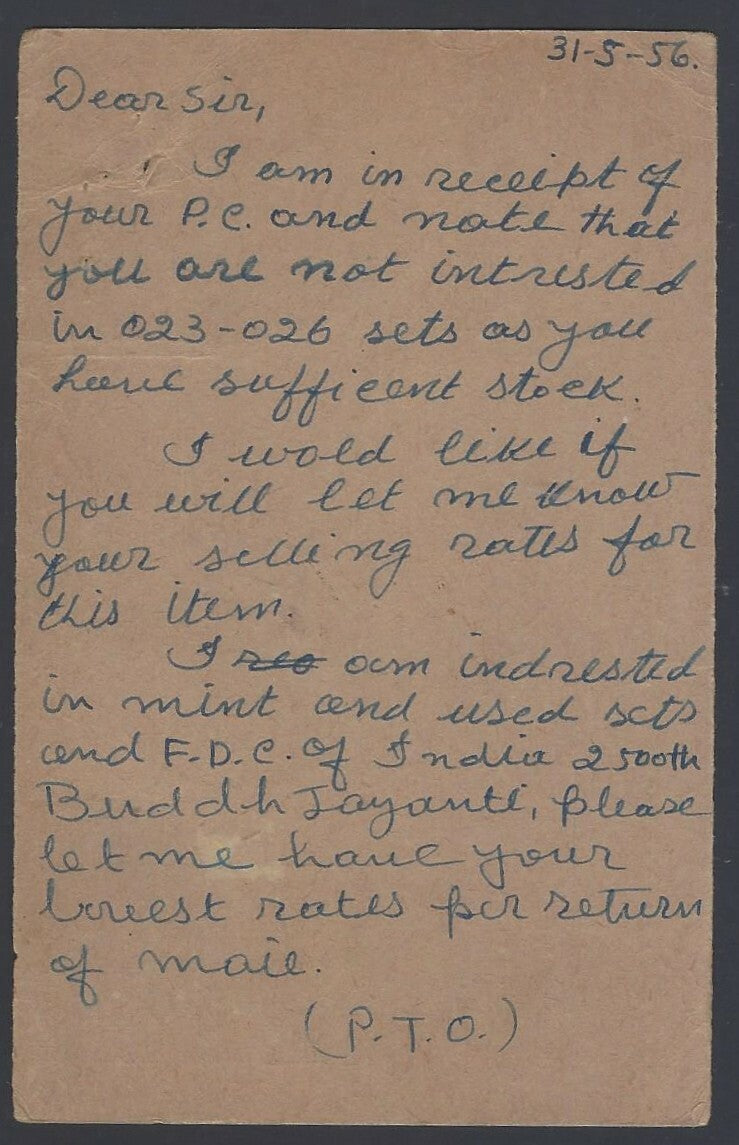 31-5-56.
Dear Sir,
I am in receipt of
your P.C. and note that
you are not intrested
in 023-026 sets as you
have sufficent stock.
I wold like if
you will let me know
your selling rates for
this item.
I am indrested
in mint and used sets
and F.D.C. of India 2500th
Buddh Jayanti, please
let me have your
lowest rates per return
of mail.
(P.T.O.)